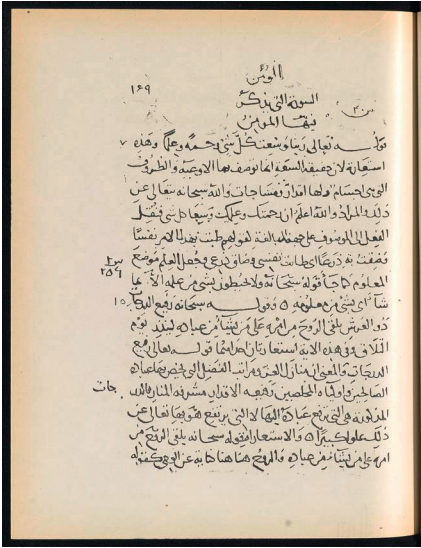 المؤمن
١٦٩
السورة التي يذكر
فيها المؤمن
قوله تعالى ربنا وسعت كل شيء رحمة وعلما وهذه
استعارة لان حقيقة السعة انما توصف بها الاوعية والظروف
التي هي اجسام ولها اقدار ومساحات والله سبحانه يتعالى عن
ذلك والمراد والله اعلم ان رحمتك وعلمك وسعا كل شيء فنقل
الفعل الى الموصوف على جهة المبالغة كقولهم طبت بهذا الامر نفسا
وضقت به ذرعا اي طابت نفسي وضاق ذرعي وجعل العلم موضع
المعلوم كما جاء قوله سبحانه ولا يحيطون بشيء من علمه الا بما
شاء اي بشيء من معلومه وقوله سبحانه رفيع الدرجات
ذو العرش يلقي الروح من امره على من يشاء من عباده لينذر يوم
التلاق وفي هذه الاية استعارتان احداهما قوله تعالى رفيع
الدرجات والمعنى ان منازل العز ومراتب الفضل التي يخص بها عباده
الصالحين واولياءه المخلصين رفيعة الاقدار مشرفة المنار فالدر
جات
المذكورة هي التي يرفع عباده اليها لا التي يرتفع هو بها تعالى عن
ذلك علوا كبيرا والاستعارة قوله سبحانه يلقي الروح من
امره على من يشاء من عباده والروح هاهنا كناية عن الوحي كقوله